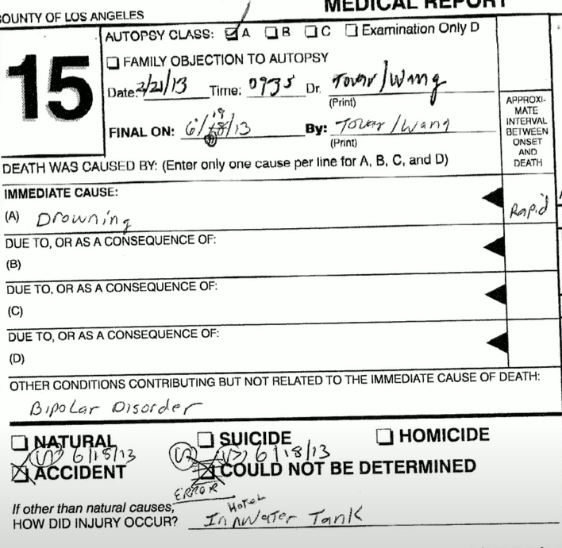 COUNTY OF LOS ANGELES
MEDICAL REPORT
15
AUTOPSY CLASS: A B C Examination Only D
FAMILY OBJECTION TO AUTOPSY
Date: 2/21/13 Time: 0735 Dr. Tovar/Wang
(Print)
FINAL ON: 6/18/13 By: Tovar/Wang
(Print)
APPROXI-
MATE
INTERVAL
BETWEEN
ONSET
AND
DEATH
DEATH WAS CAUSED BY: (Enter only one cause per line for A, B, C, and D)
IMMEDIATE CAUSE:
(A) Drowning
Rapid
DUE TO, OR AS A CONSEQUENCE OF:
(B)
DUE TO, OR AS A CONSEQUENCE OF:
(C)
DUE TO, OR AS A CONSEQUENCE OF:
(D)
OTHER CONDITIONS CONTRIBUTING BUT NOT RELATED TO THE IMMEDIATE CAUSE OF DEATH:
Bipolar Disorder
NATURAL SUICIDE HOMICIDE
6/18/13 6/18/13
ACCIDENT COULD NOT BE DETERMINED
ERROR
If other than natural causes,
Hotel
HOW DID INJURY OCCUR? In Water Tank